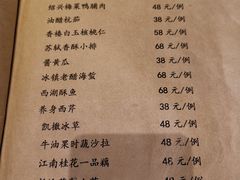 绍兴梅菜鸭脯肉 48 元/例
油醋杭茄 38 元/例
香椿白玉核桃仁 58 元/例
苏轼香酥小排 68 元/例
酱黄瓜 38 元/例
冰镇老醋海蜇 68 元/例
西湖酥鱼 68 元/例
养身西芹 38 元/例
凯撒冰草 48 元/例
牛油果时蔬沙拉 48 元/例
江南桂花一品藕 48 元/例